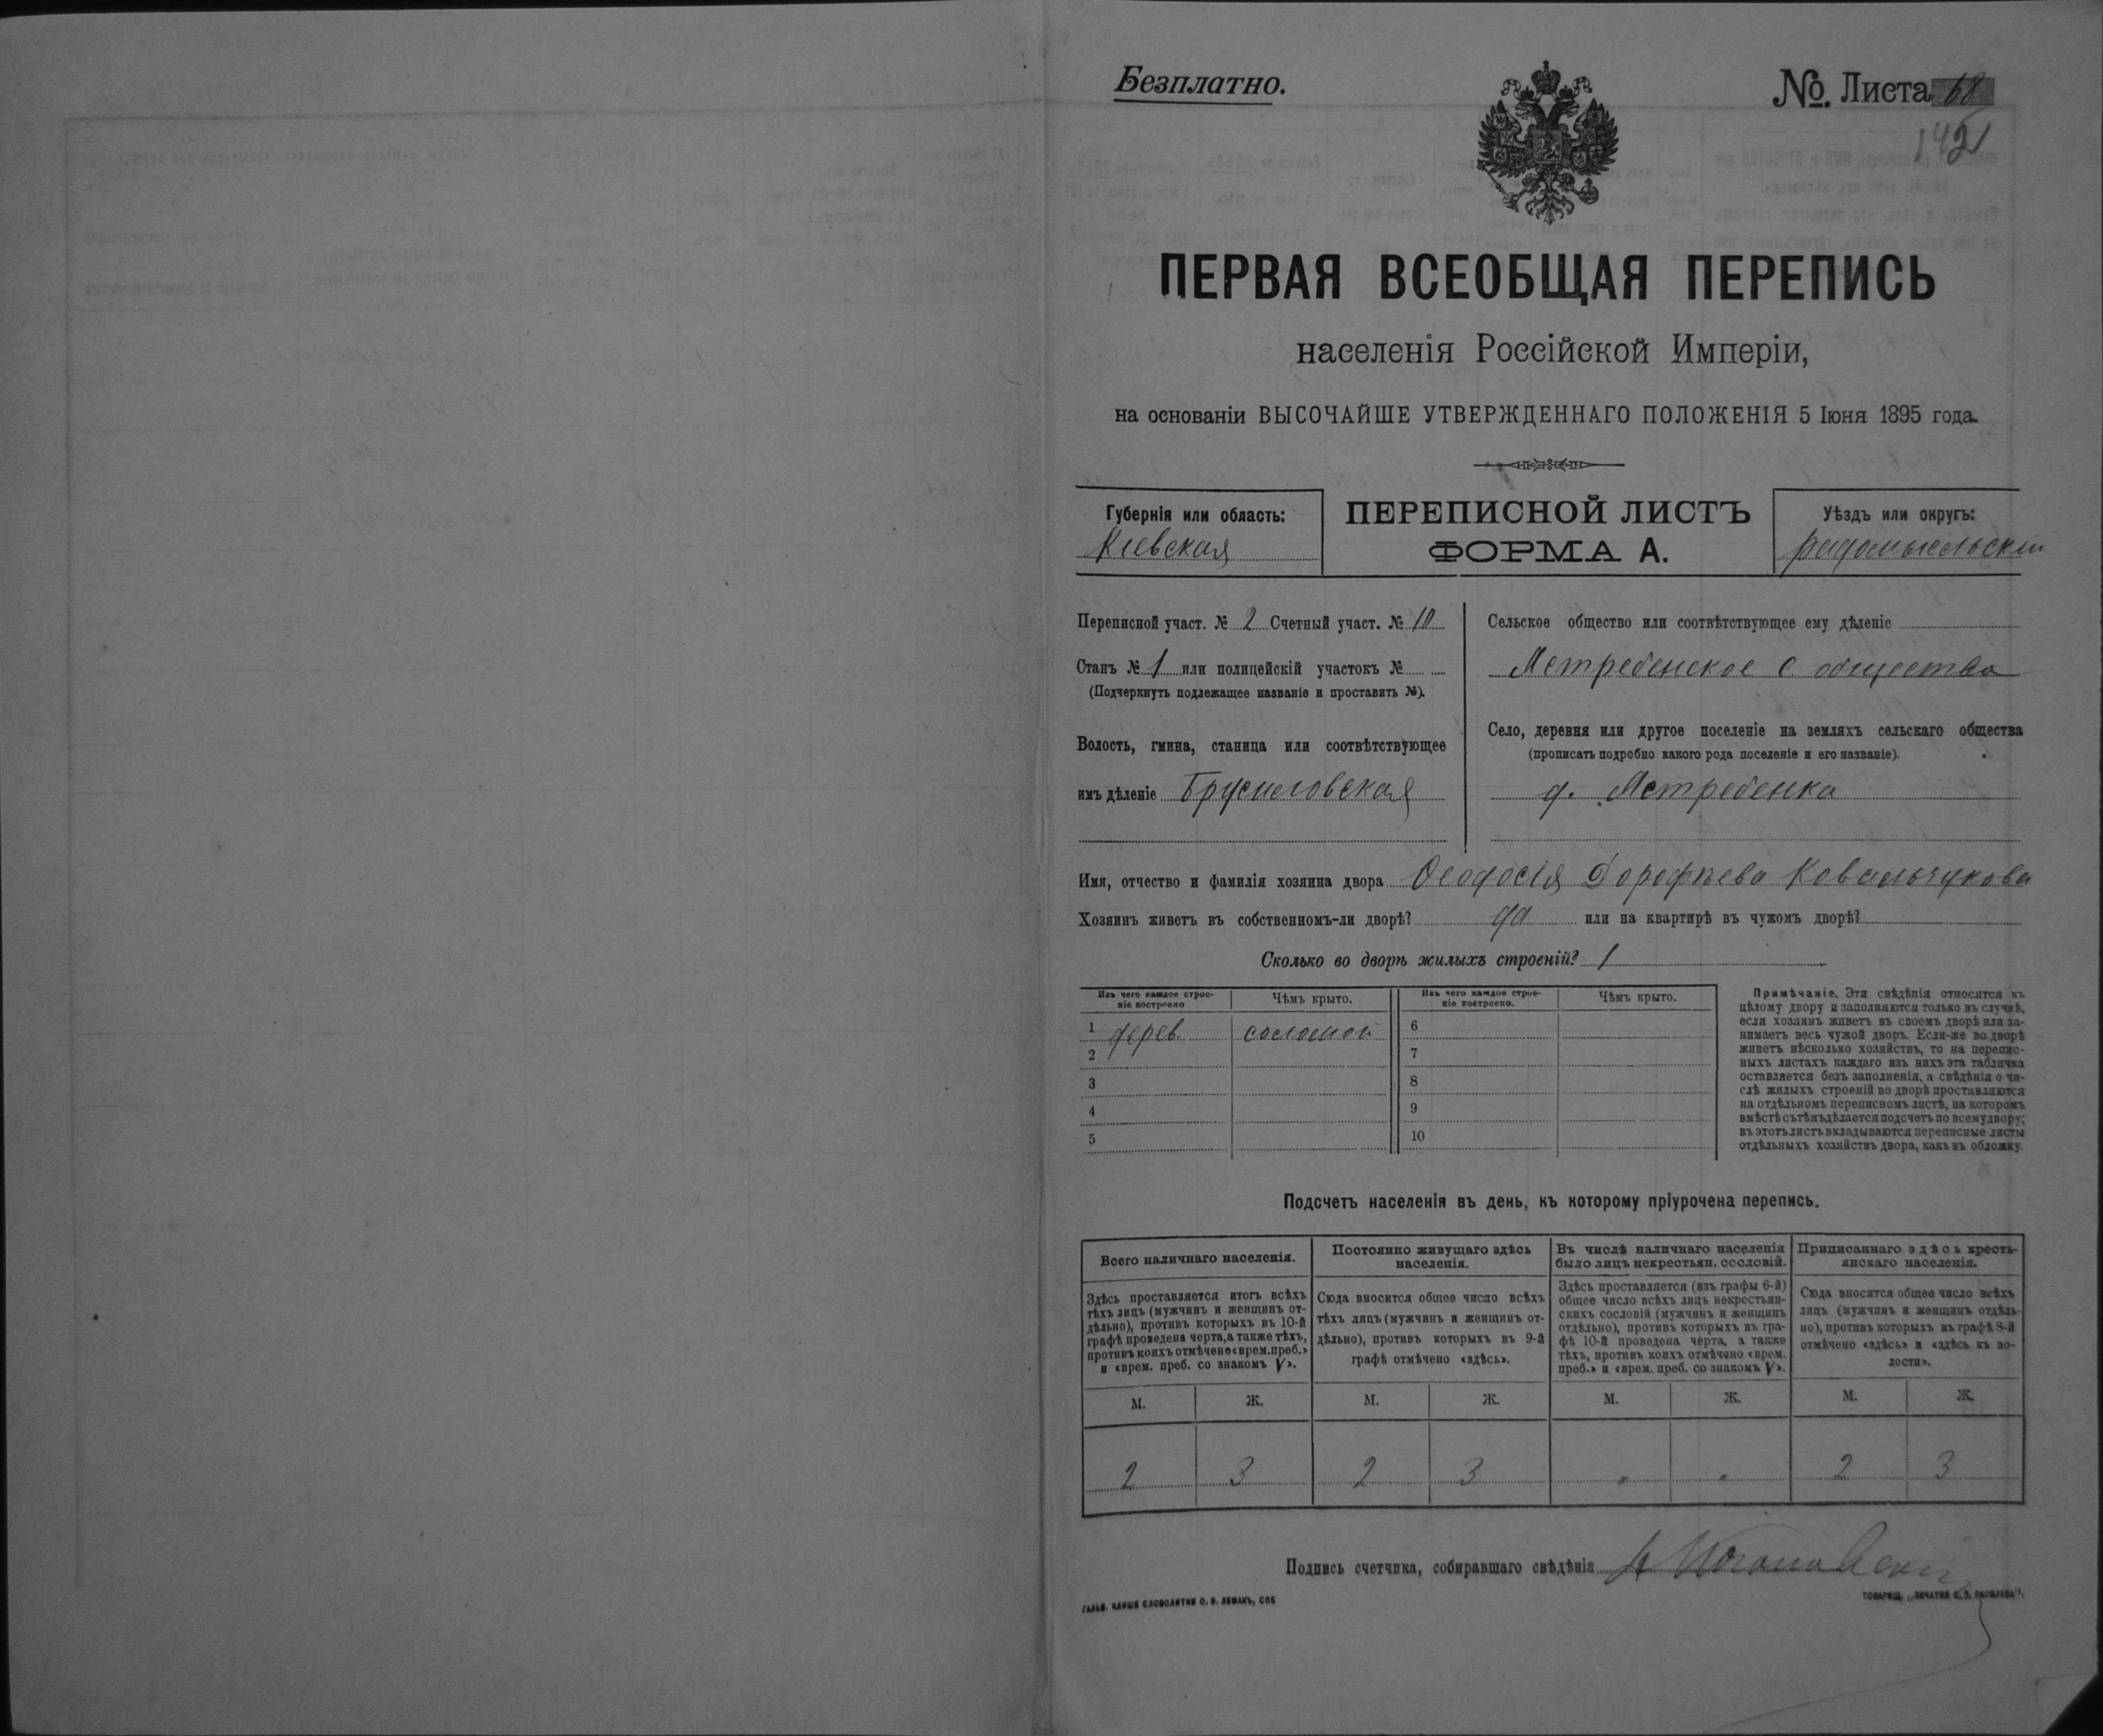 Безплатно.
№. Листа 68
142
ПЕРВАЯ ВСЕОБЩАЯ ПЕРЕПИСЬ
населенія Россійской Имперіи,
на основаніи ВЫСОЧАЙШЕ УТВЕРЖДЕННАГО ПОЛОЖЕНІЯ 5 Іюня 1895 года.
Губернія или область:
Кіевская
ПЕРЕПИСНОЙ ЛИСТЪ
ФОРМА А.
Уѣздъ или округъ:
радомысльскій
Переписной участ. № 2 Счетный участ. № 10
Станъ № 1 или полицейскій участокъ №
(Подчеркнуть подлежащее названіе и проставить №).
Волость, гмина, станица или соотвѣтствующее
имъ дѣленіе Брусиловская
Сельское общество или соотвѣтствующее ему дѣленіе
Ястребенское с общество
Село, деревня или другое поселеніе на земляхъ сельскаго общества
(прописать подробно какого рода поселеніе и его названіе).
д. Ястребенка
Имя, отчество и фамилія хозяина двора Ѳеодосія Дорофѣева Ковальчукова
Хозяинъ живетъ въ собственномъ-ли дворѣ? да или на квартирѣ въ чужомъ дворѣ?
Сколько во дворѣ жилыхъ строеній? 1
Изъ чего каждое строе-
ніе построено
Чѣмъ крыто.
Изъ чего каждое строе-
ніе построено.
Чѣмъ крыто.
1 дерев. соломой
2
3
4
5
6
7
8
9
10
Примѣчаніе. Эти свѣдѣнія относятся къ
цѣлому двору и заполняются только въ случаѣ,
если хозяинъ живетъ въ своемъ дворѣ или за-
нимаетъ весь чужой дворъ. Если-же во дворѣ
живетъ нѣсколько хозяйствъ, то на перепис-
ныхъ листахъ каждаго изъ нихъ эта табличка
оставляется безъ заполненія, а свѣдѣнія о чи-
слѣ жилыхъ строеній во дворѣ проставляются
на отдѣльномъ переписномъ листѣ, на которомъ
вмѣстѣ съ тѣмъ дѣлается подсчетъ по всему двору;
въ этотъ листъ вкладываются переписные листы
отдѣльныхъ хозяйствъ двора, какъ въ обложку.
Подсчетъ населенія въ день, къ которому пріурочена перепись.
Всего наличнаго населенія.
Здѣсь проставляется итогъ всѣхъ
тѣхъ лицъ (мужчинъ и женщинъ от-
дѣльно), противъ которыхъ въ 10-й
графѣ проведена черта, а также тѣхъ,
противъ коихъ отмѣчено «врем. преб.»
и «врем. преб. со знакомъ V».
Постоянно живущаго здѣсь
населенія.
Сюда вносится общее число всѣхъ
тѣхъ лицъ (мужчинъ и женщинъ от-
дѣльно), противъ которыхъ въ 9-й
графѣ отмѣчено «здѣсь».
Въ числѣ наличнаго населенія
было лицъ некрестьян. сословій.
Здѣсь проставляется (изъ графы 6-й)
общее число всѣхъ лицъ некрестьян-
скихъ сословій (мужчинъ и женщинъ
отдѣльно), противъ которыхъ въ гра-
фѣ 10-й проведена черта, а также
тѣхъ, противъ коихъ отмѣчено «врем.
преб.» и «врем. преб. со знакомъ V».
Приписаннаго здѣсь кресть-
янскаго населенія.
Сюда вносится общее число всѣхъ
лицъ (мужчинъ и женщинъ отдѣль-
но), противъ которыхъ въ графѣ 8-й
отмѣчено «здѣсь» и «здѣсь къ во-
лости».
М. Ж. М. Ж. М. Ж. М. Ж.
2 3 2 3 " " 2 3
Подпись счетчика, собиравшаго свѣдѣнія
ГАЛЬВ. КЛИШЕ СЛОВОЛИТНИ О. И. ЛЕМАНЪ, СПБ
ТОВАРИЩ. „ПЕЧАТНЯ С. П. ЯКОВЛЕВА“.